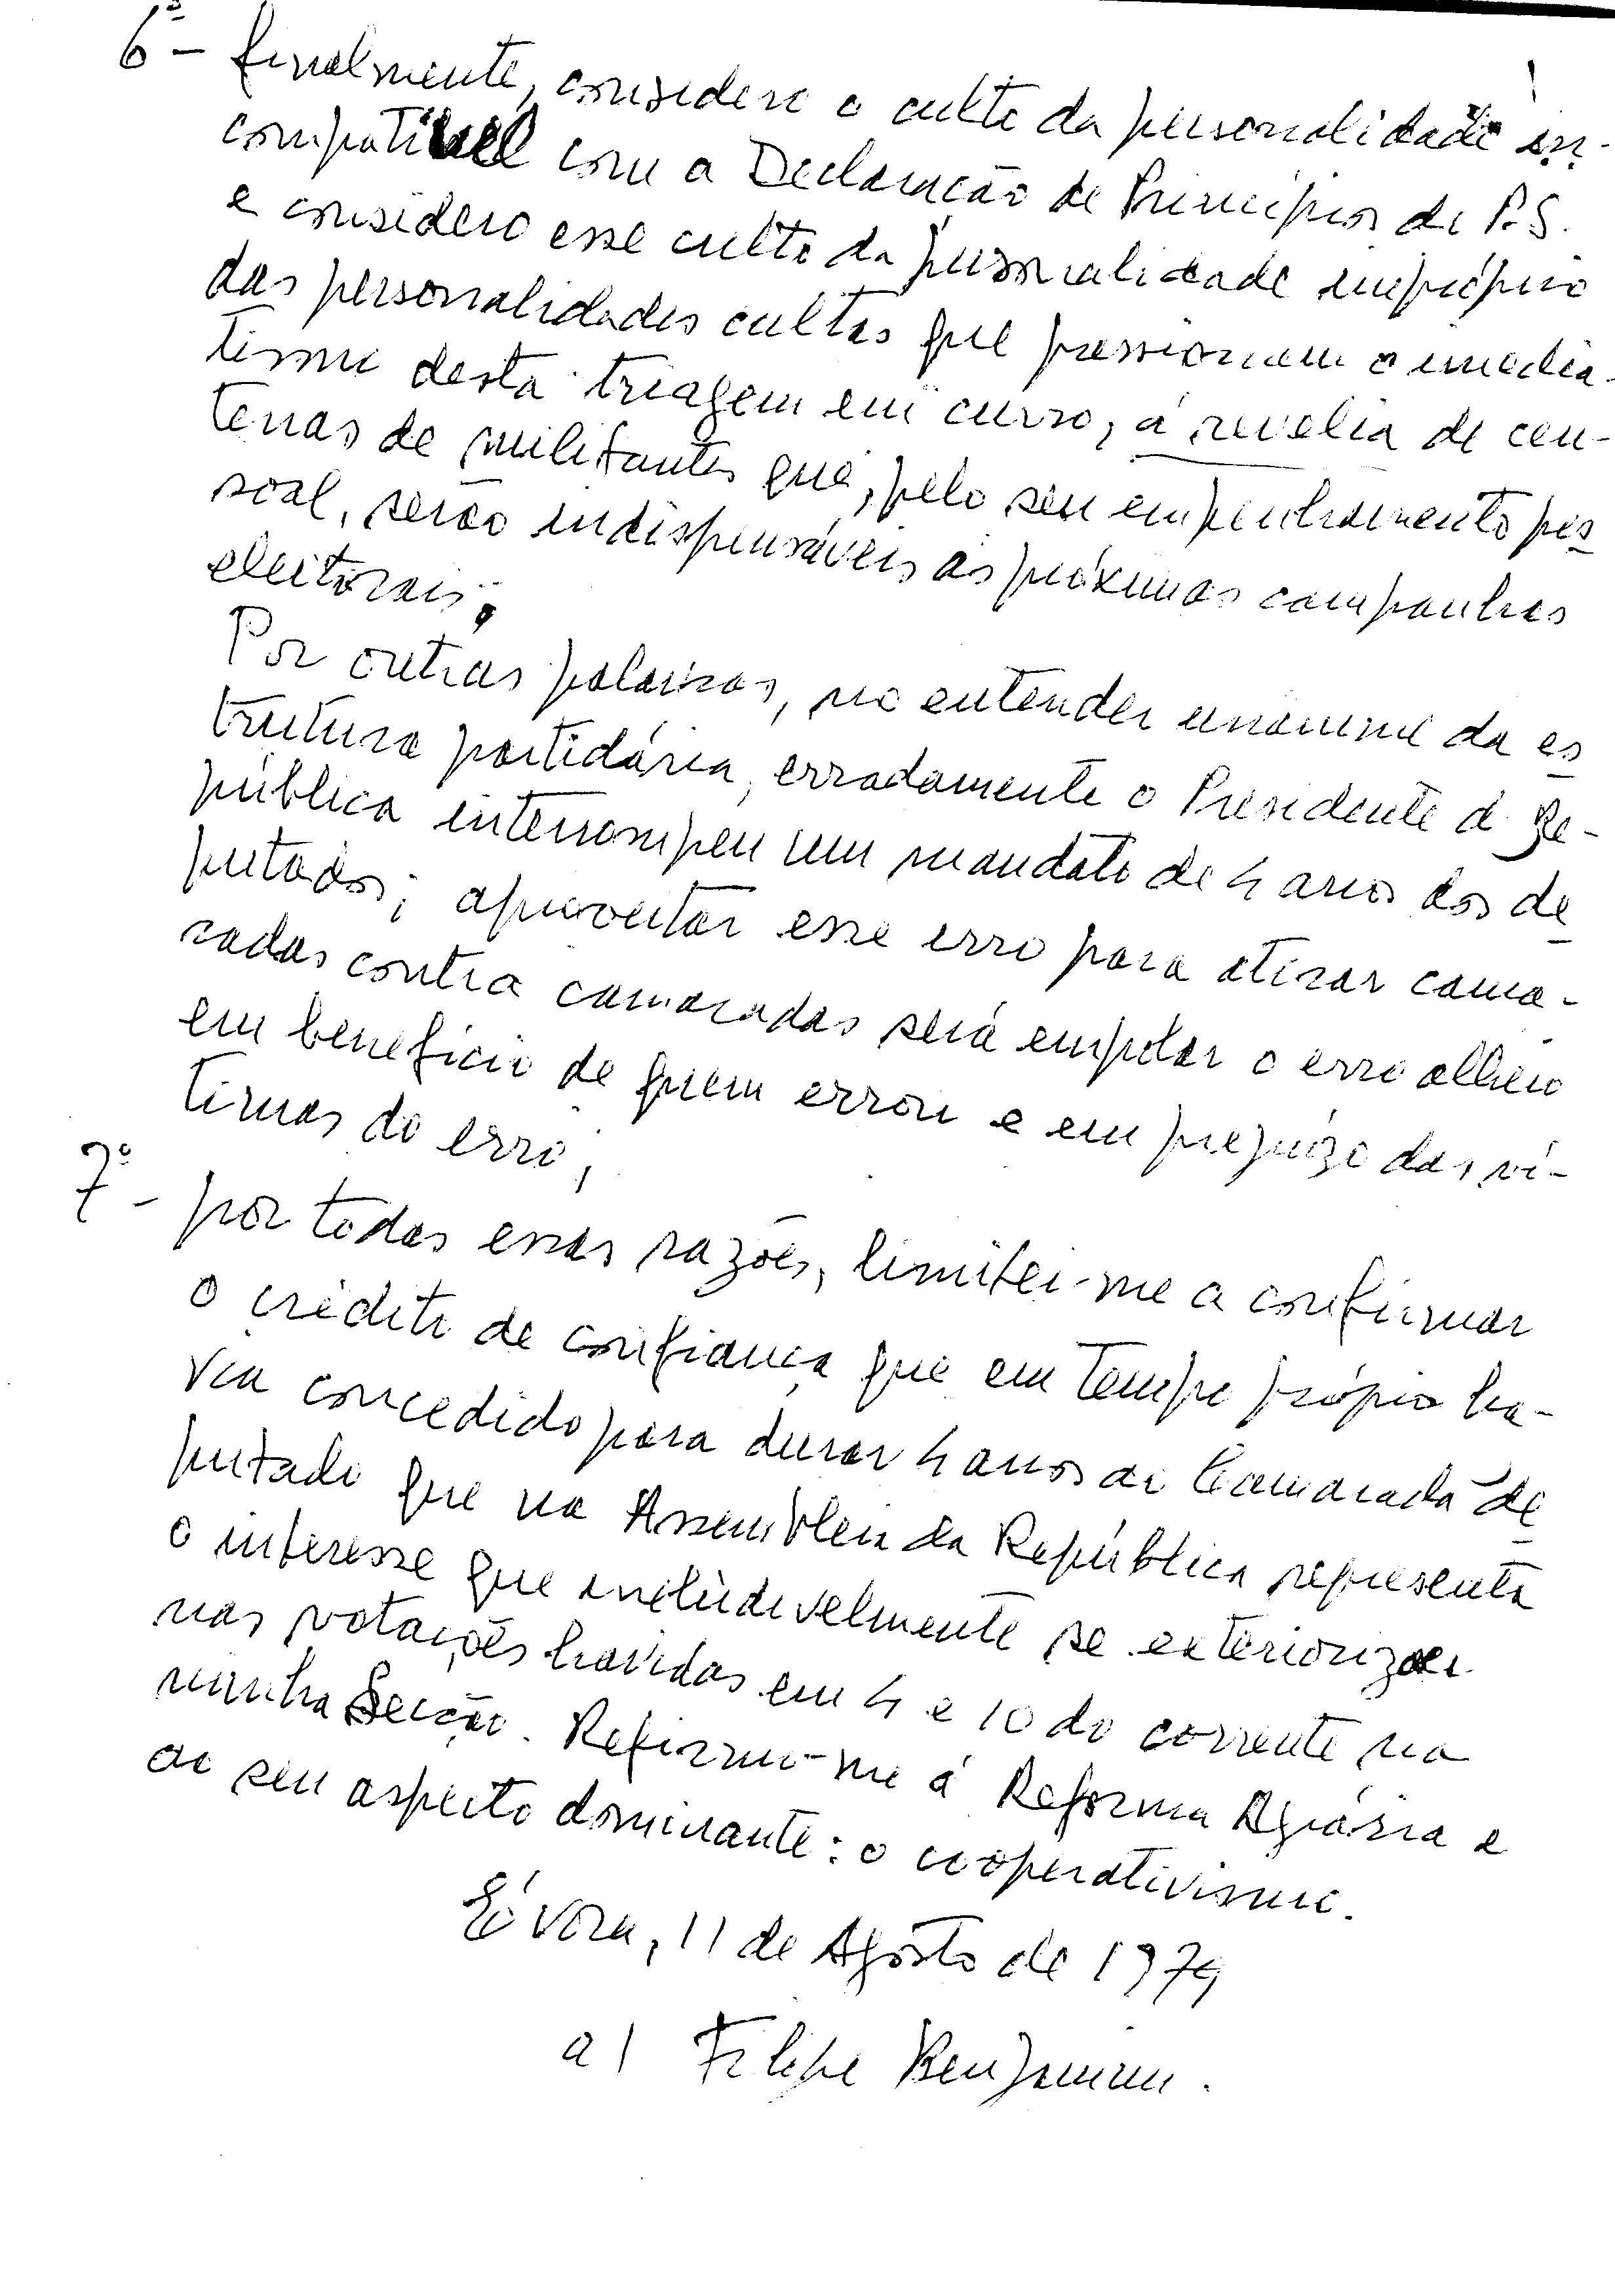 6º - finalmente, considero o culto da personalidade in-
compatível com a Declaração de Princípios do P.S.
e considero esse culto da personalidade impróprio
das personalidades cultas que pressionam o imedia-
tismo desta triagem em curso, à revelia de cen-
tenas de militantes que, pelo seu empenhamento pes
soal, serão indispensáveis às próximas campanhas
eleitorais;
Por outras palavras, no entender unânime da es
trutura partidária, erradamente o Presidente d. Re-
pública interrompeu um mandato de 4 anos dos de
putados; aproveitar esse erro para atirar cama-
radas contra camaradas será empolar o erro alheio
em benefício de quem errou e em prejuízo das ví-
timas do erro;
7º - por todas essas razões, limitei-me a confirmar
o crédito de confiança que em tempo próprio ha-
via concedido para durar 4 anos ao Camarada de
putado que na Assembleia da República representa
o interesse que iniludivelmente se exteriorizou
nas votações havidas em 4 e 10 do corrente na
minha Secção. Refiro-me à Reforma Agrária e
ao seu aspecto dominante: o cooperativismo.
Évora, 11 de Agosto de 1979
a) Filipe Benjamim.